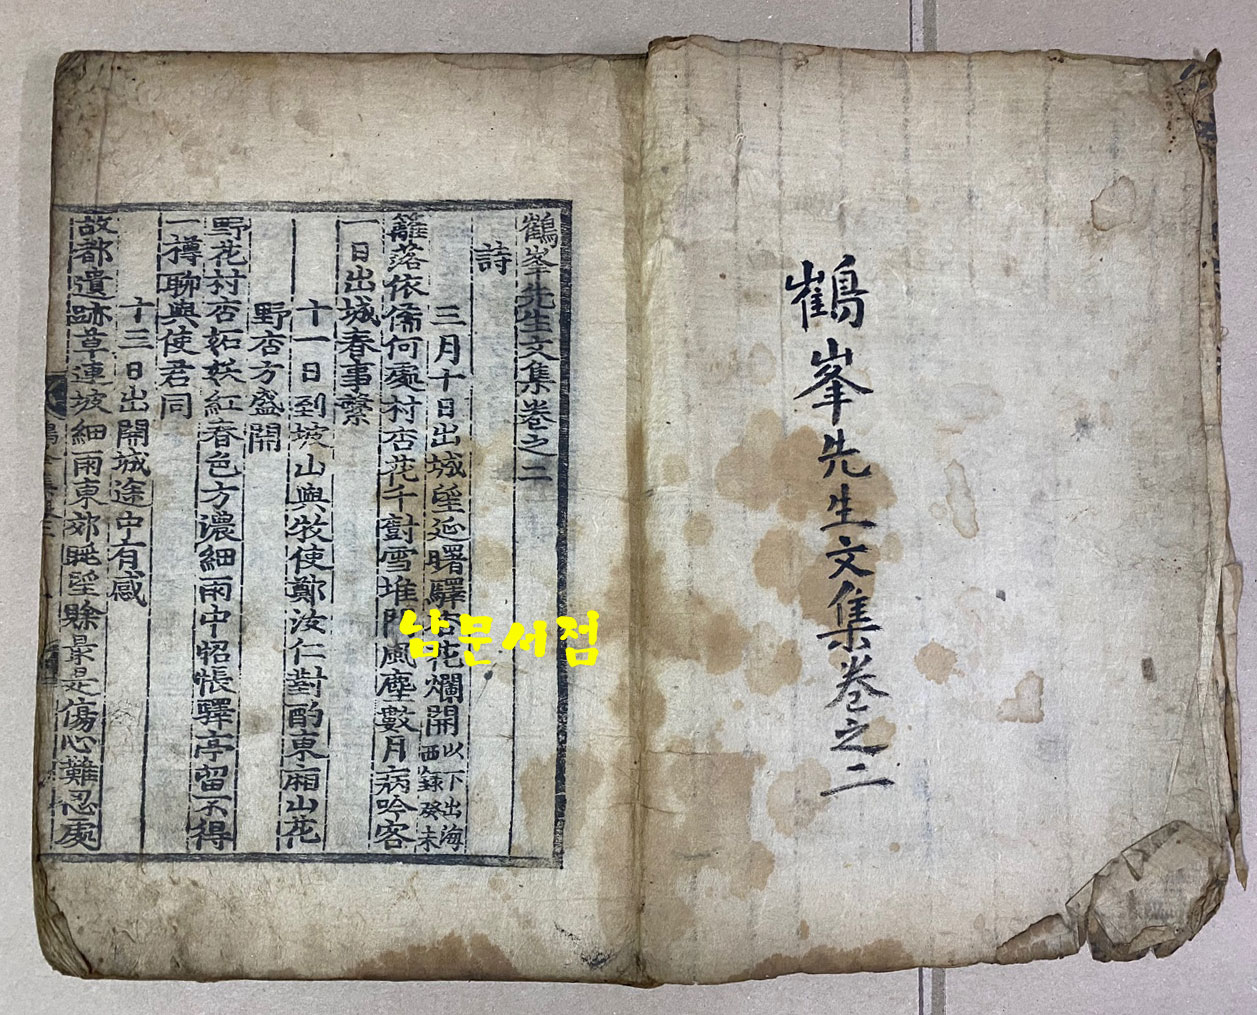 鶴峯先生文集卷之二
鶴峯先生文集卷之二
詩
三月十日出城望延曙驛杏花爛開以下出海西錄癸未
籬落依俙何處村杏花千樹雪堆門風塵數月病吟客
一日出城春事繁
十一日到坡山與牧使鄭汝仁對酌東廂山花
野杏方盛開
野花村杏妬妖紅春色方濃細雨中怊悵驛亭留不得
一樽聊與使君同
十三日出開城途中有感
故都遺跡草連坡細雨東郊眺望賖最是傷心難忍處
남문서점